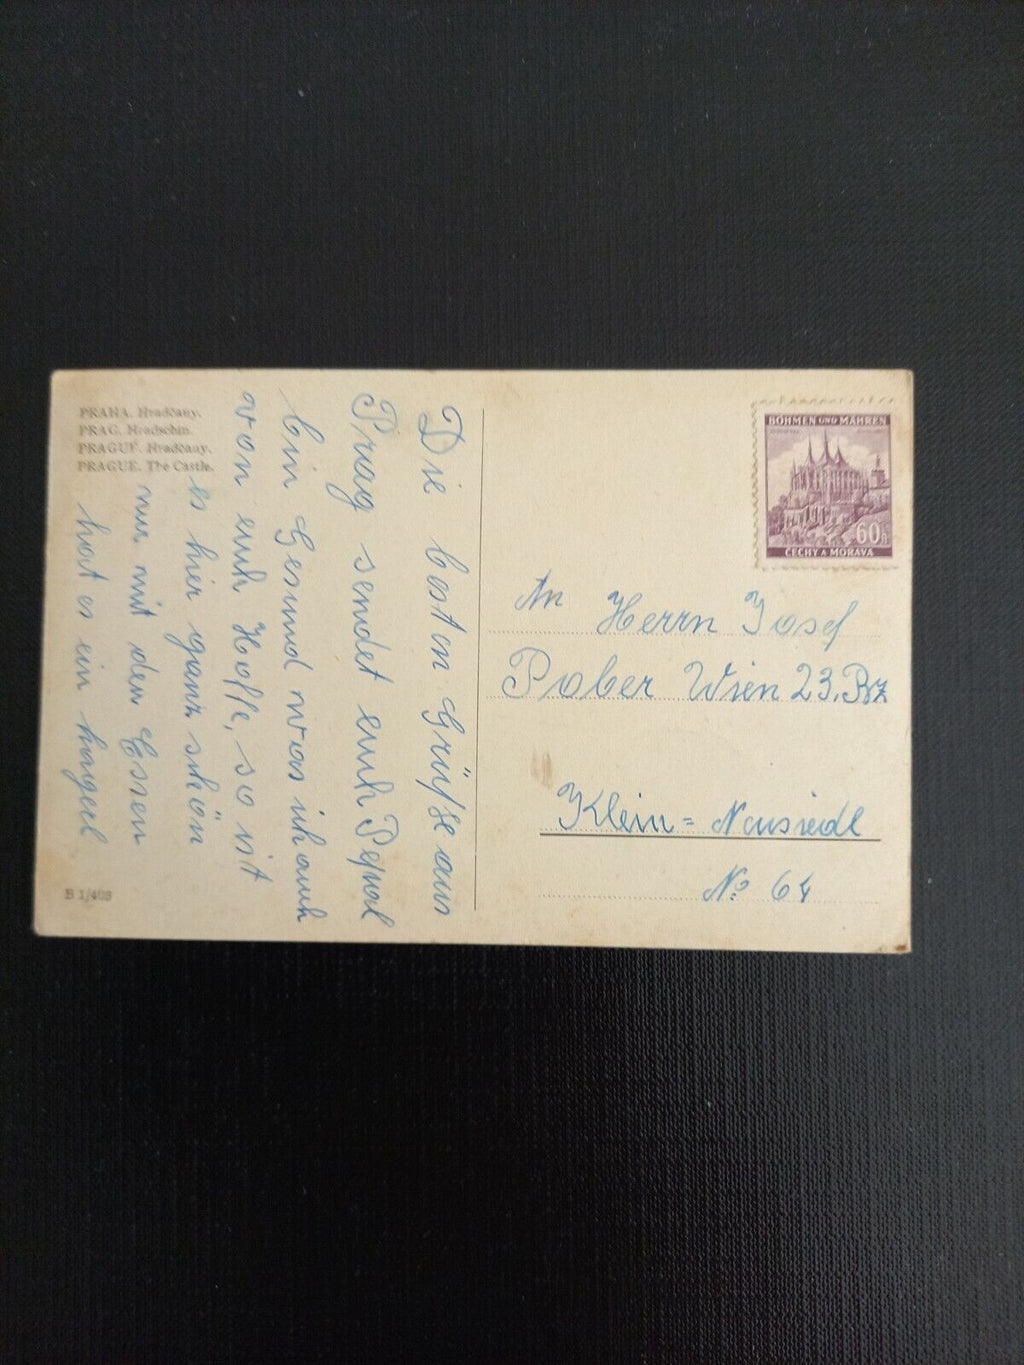 PRAHA. Hradčany.
PRAG. Hradschin.
PRAGUE. Hradčany.
PRAGUE. The Castle.
Die besten Grüße aus
Prag sendet euch Pepel
bin Gesund was ich auch
von euch Hoffe, so ist
es hier ganz schön
nur mit den Essen
hat es ein
B 1/408
BÖHMEN UND MÄHREN
60h
ČECHY A MORAVA
An Herrn Josef
Pober Wien 23. Bz
Klein = Neusiedl
No 64